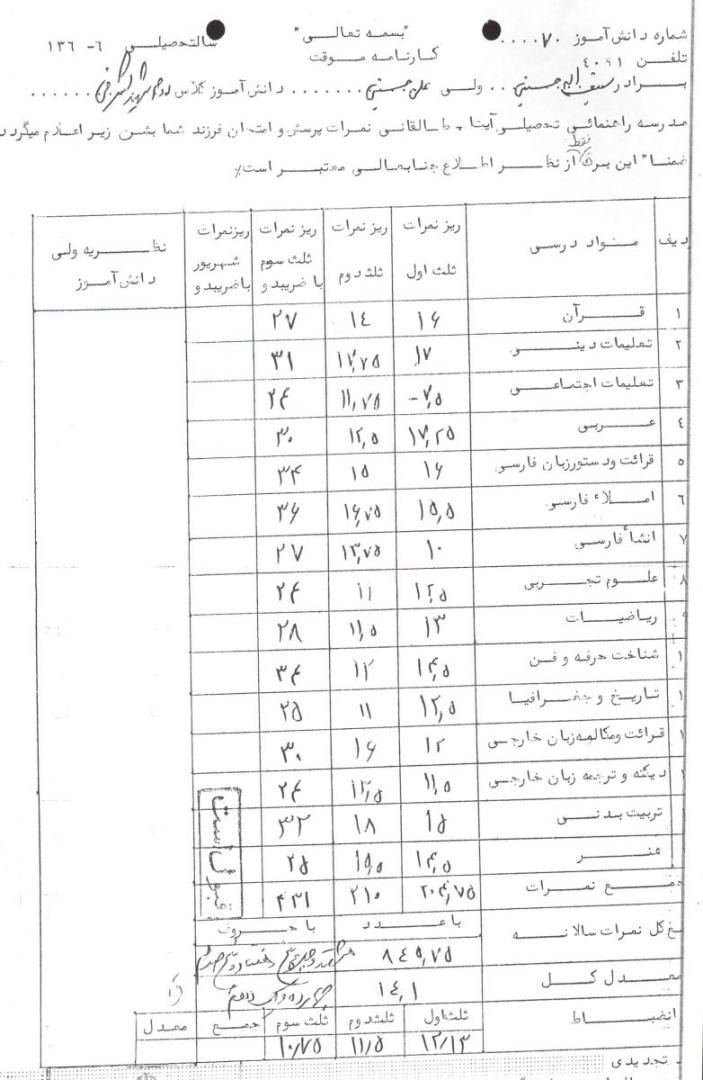 "بسمه تعالی"
شماره دانش‌آموز ۷۰....
کارنامه موقت
سالتحصیلی ۶-۱۳۶
تلفن ۴۰۹۱
برادر سیف‌اله حسینی .. ولی علی حسینی ........ دانش‌آموز کلاس دوم شهید ......
مدرسه راهنمائی تحصیلی آیتا.. طالقانی نمرات پرسش و امتحان فرزند شما بشن زیر اعلام میگردد
ضمنا" این برگ فقط از نظر اطلاع جنابعالی معتبر است٪
ردیف مواد درسی ریز نمرات ثلث اول ریز نمرات ثلث دوم ریز نمرات ثلث سوم با ضریب دو ریزنمرات شهریور باضریب دو نظریه ولی دانش‌آموز
۱ قرآن ۱۶ ۱۴ ۲۷
۲ تعلیمات دینی ۱۷ ۱۲,۷۵ ۳۱
۳ تعلیمات اجتماعی ۷,۵- ۱۱,۷۵ ۲۴
۴ عربی ۱۷,۲۵ ۱۲,۵ ۳۰
۵ قرائت و دستورزبان فارسی ۱۶ ۱۵ ۳۴
۶ املاء فارسی ۱۵,۵ ۱۶,۷۵ ۳۶
۷ انشاء فارسی ۱۰ ۱۳,۷۵ ۲۷
۸ علوم تجربی ۱۲,۵ ۱۱ ۲۴
۹ ریاضیات ۱۳ ۱۱,۵ ۲۸
۱ شناخت حرفه و فن ۱۴,۵ ۱۲ ۳۴
۱ تاریخ و جغرافیا ۱۲,۵ ۱۱ ۲۵
۱ قرائت ومکالمه زبان خارجی ۱۲ ۱۶ ۳۰
۱ دیکته و ترجمه زبان خارجی ۱۱,۵ ۱۲,۵ ۲۴
تربیت بدنی ۱۵ ۱۸ ۳۲
هنر ۱۴,۵ ۱۵,۵ ۲۵
جمع نمرات ۲۰۴,۷۵ ۲۱۰ ۴۳۱
قبول است
جمع کل نمرات سالانه با عدد با حروف
۸۴۵,۷۵ هشتصد و چهل و پنج و هفتاد و پنج صدم
معدل کل ۱۴,۱ چهارده و یک دهم
انضباط ثلث اول ثلث دوم ثلث سوم جمع معدل
۱۲/۱۳ ۱۱,۵ ۱۰,۷۵
تجدیدی